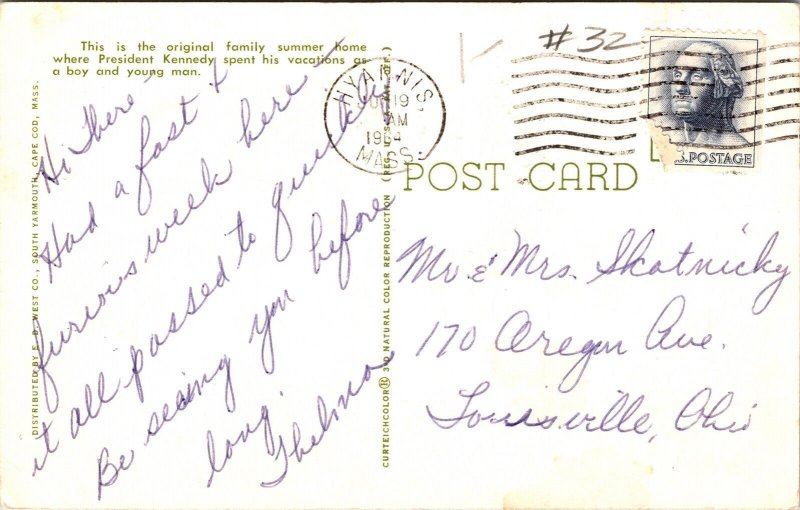 This is the original family summer home
where President Kennedy spent his vacations as
a boy and young man.
Hi There -
Had a fast &
furious week here -
it all passed to quickly
Be seeing you before
long.
Thelma
DISTRIBUTED BY E. D. WEST CO., SOUTH YARMOUTH, CAPE COD, MASS.
CURTEICHCOLOR® 3-D NATURAL COLOR REPRODUCTION (REG. U.S.A. PAT. OFF.)
HYANNIS
19
AM
1964
MASS.
# 32
S. POSTAGE
POST CARD
Mr & Mrs. Skotnicky
170 Oregon Ave.
Louisville, Ohio